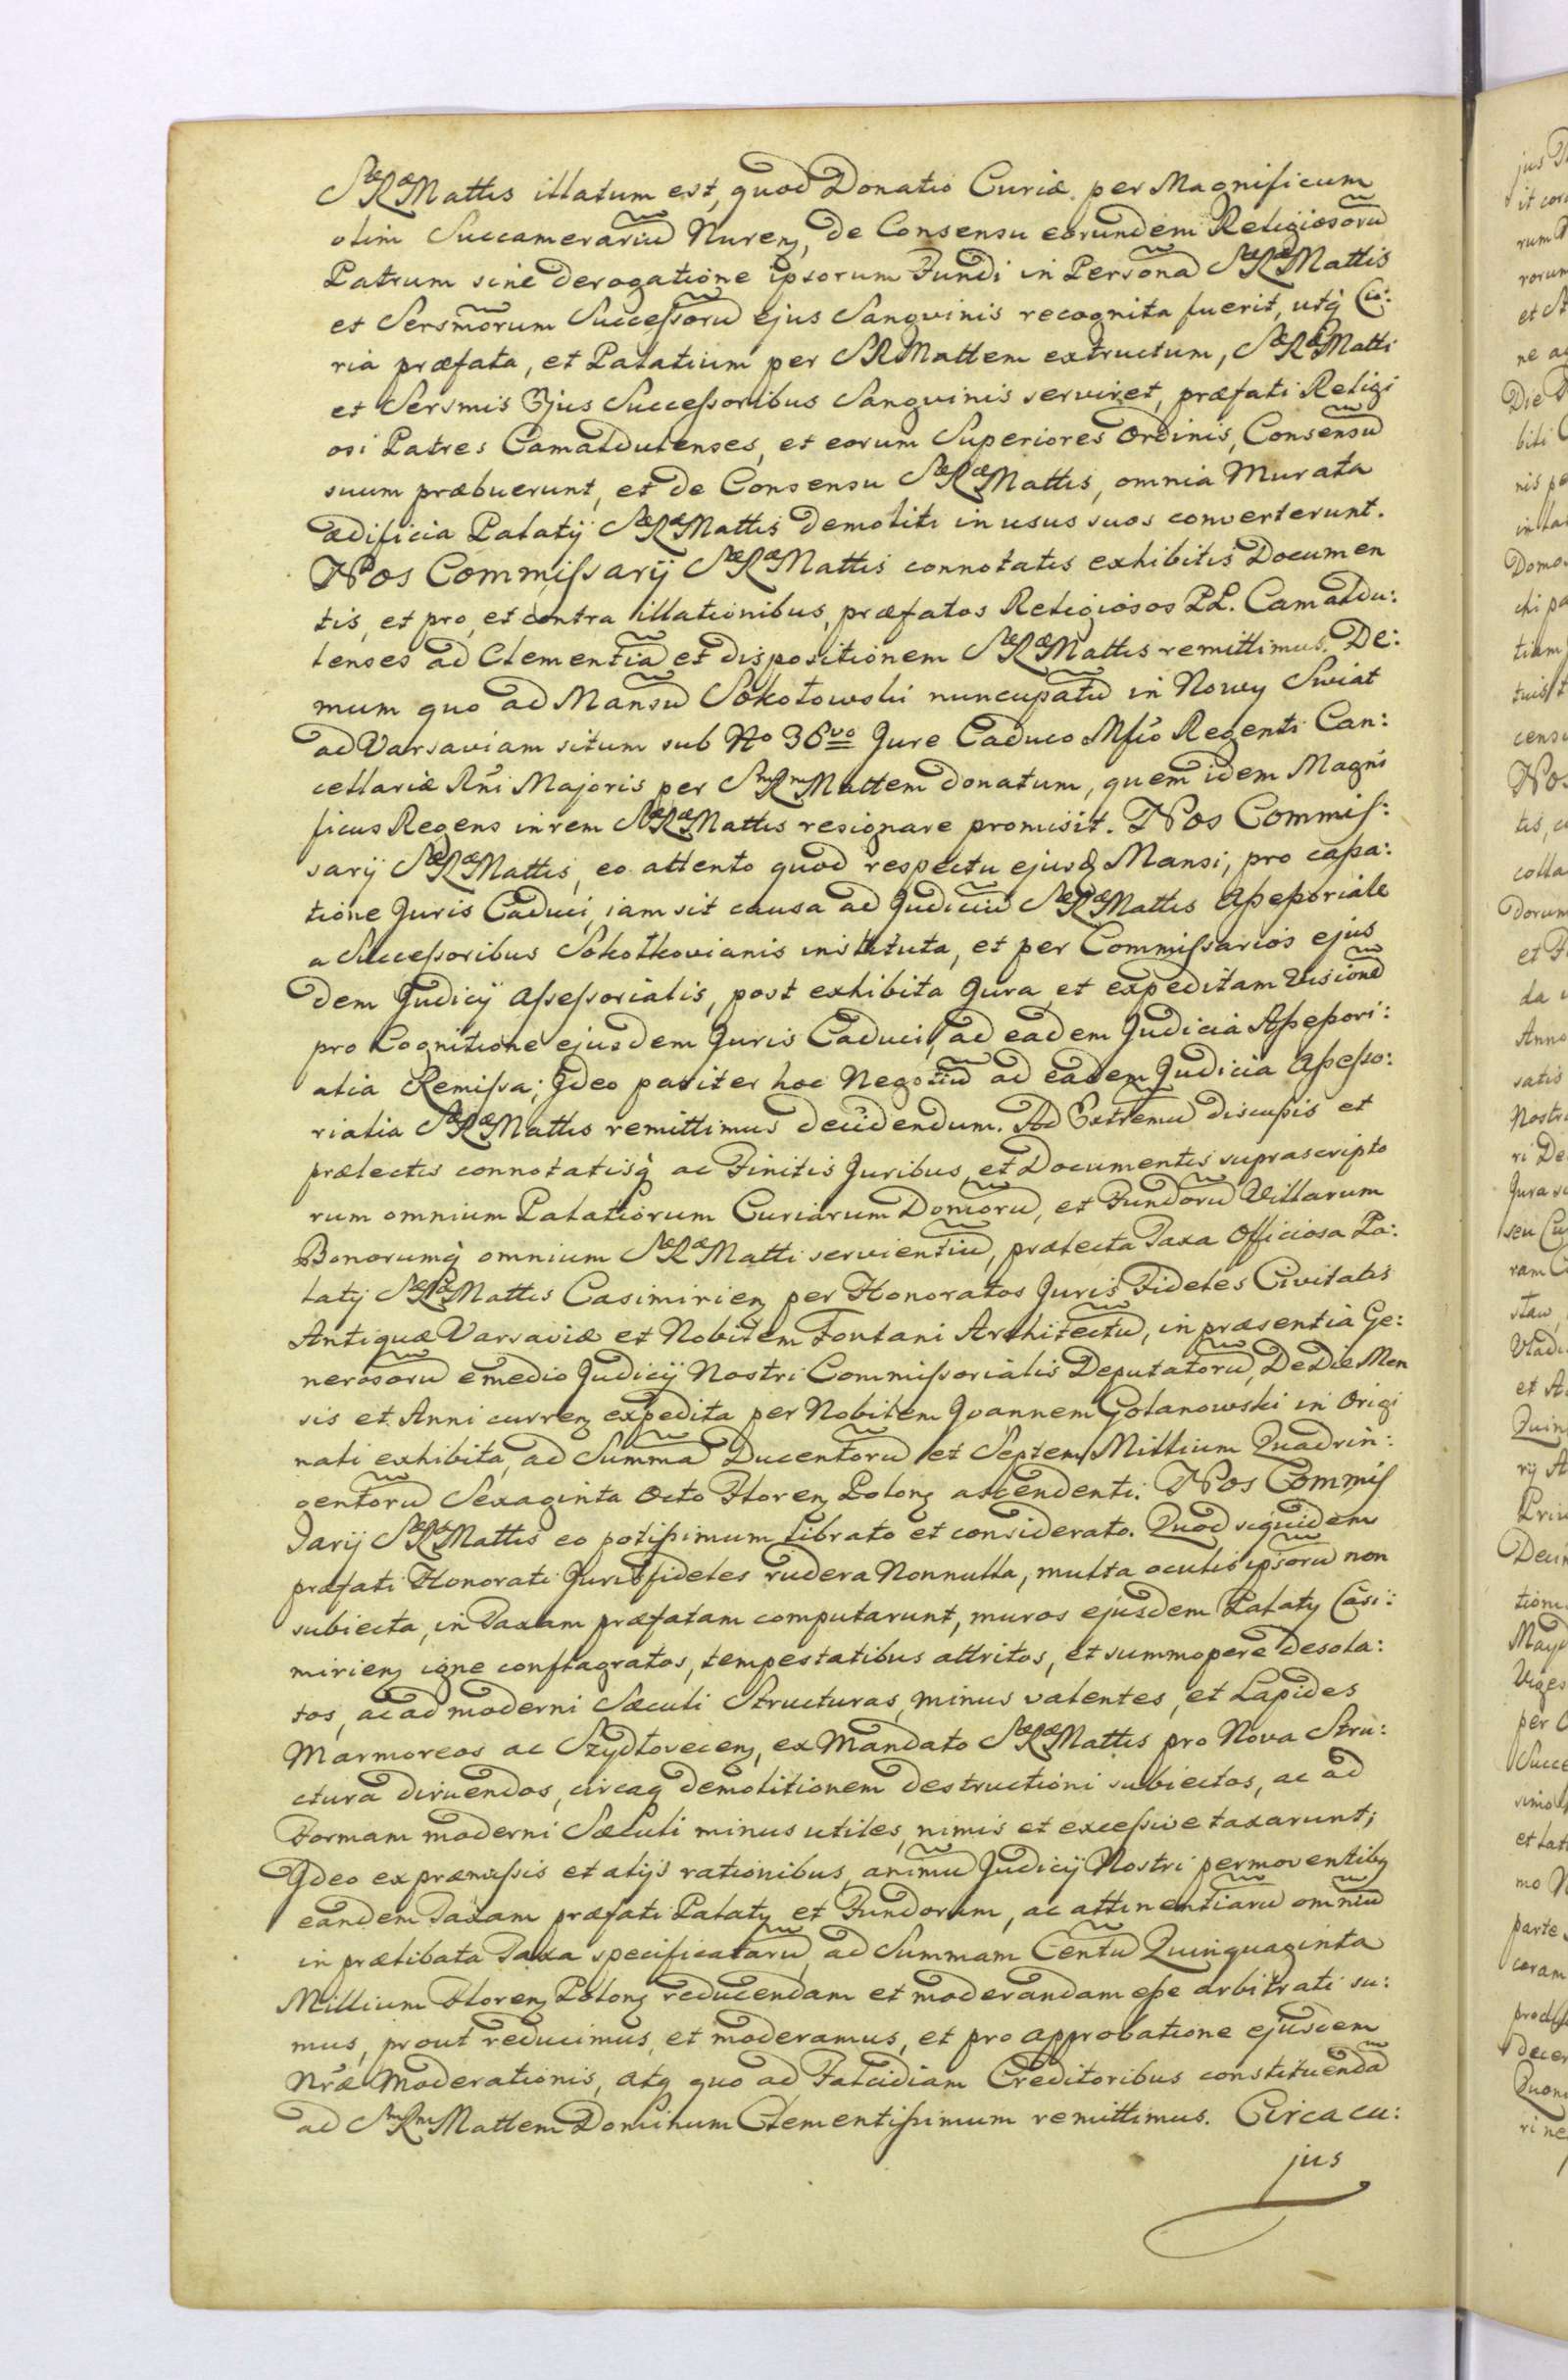 SæRæMattis illatum est, quod Donatio Curiæ per Magnificum
olim Succamerariũ Nureñ, de Consensu eorundem Religiosorũ
Patrum sine derogatione ipsorum Fundi in Persona SæRæMattis
et Sersmorum Successorũ ejus Sangvinis recognita fuerit, utq̃ Cu:
ria præfata, et Palatium per SRMattem extructum, SæRæMatti
et Sersmis Ejus Successoribus Sangvinis serviret, præfati Religi
osi Patres Camaldulenses, et eorum Superiores Ordinis, Consensũ
suum præbuerunt, et de Consensu SæRæMattis, omnia Murata
ædificia Palatij SæRæMattis demoliti in usus suos converterunt.
Nos Commissarij SæRæMattis connotatis exhibitis Documen
tis, et pro, et contra illationibus, præfatos Religiosos PP. Camaldu:
lenses ad Clementiã et dispositionem SæRæMattis remittimus. De:
mum quo ad Mansũ Sokołowski nuncupatũ in Nowy Swiat
ad Varsaviam situm sub No 36vo Jure Caduco Mfco Regenti Can:
cellariæ Rni Majoris per SmRmMattem donatum, quem idem Magni
ficus Regens in rem SæRæMattis resignare promisit. Nos Commis:
sarij SæRæMattis, eo attento quod respectu ejusd Mansi, pro cassa:
tione Juris Caduci, iam sit causa ad Judiciũ SæRæMattis Assessoriale
a Successoribus Sokołkovianis instituta, et per Commissarios ejus
dem Judicij Assessorialis, post exhibita Jura et expeditam Visionẽ
pro Cognitione ejusdem Juris Caduci, ad eadem Judicia Assessori:
alia Remissa; Ideo pariter hoc Negotiũ ad eadem Judicia Assesso:
rialia SæRæMattis remittimus decidendum. Ad Extremũ discussis et
prælectis connotatisq̃ ac Finitis Juribus, et Documentis suprascripto
rum omnium Palatiorum Curiarum Domorũ, et Fundorũ Villarum
Bonorumq̃ omnium SæRæMatti servientiũ, prælecta Taxa Officiosa Pa:
latij SæRæMattis Casimirieñ per Honoratos Juris Fideles Civitatis
Antiquæ Varsaviæ et Nobilem Fontani Architectũ, in præsentia Ge:
nerosorũ e medio Judicij Nostri Commissorialis Deputatorũ, De Die Men
sis et Anni curreñ expedita per Nobilem Joannem Golanowski in Origi
nali exhibita, ad Summã Ducentorũ et Septem Millium Quadrin:
gentorũ Sexaginta Octo Floreñ Poloñ ascendenti. Nos Commis
sarij SæRæMattis eo potissimum librato et considerato. Quod siquidem
præfati Honorati Jurisfideles rudera Nonnulla, multa oculis ipsorũ non
subiecta, in Taxam præfatam computarunt, muros ejusdem Palaty Casi:
mirieñ igne conflagratos, tempestatibus attritos, et summopere desola:
tos, ac ad moderni Sæculi Structuras, minus valentes, et Lapides
Marmoreos ac Szydłovecieñ, ex Mandato SæRæMattis pro Nova Stru:
ctura diruendos, circaq demolitionem destructioni subiectos, ac ad
Formam moderni Sæculi minus utiles, nimis et excessive taxarunt;
Ideo ex præmissis et alijs rationibus, animũ Judicij Nostri permoventibq
eandem Taxam præfati Palaty et Fundorum, ac attinentiarũ omniũ
in prælibata Taxa specificatarũ, ad Summam Centũ Quinquaginta
Millium Floreñ Poloñ reducendam et moderandam esse arbitrati su:
mus, prout reducimus, et moderamus, et pro approbatione ejusdem
Nræ Moderationis, atq quo ad Falcidiam Creditoribus constituendã
ad SmRmMattem Dominum Clementissimum remittimus. Circa cu:
jus